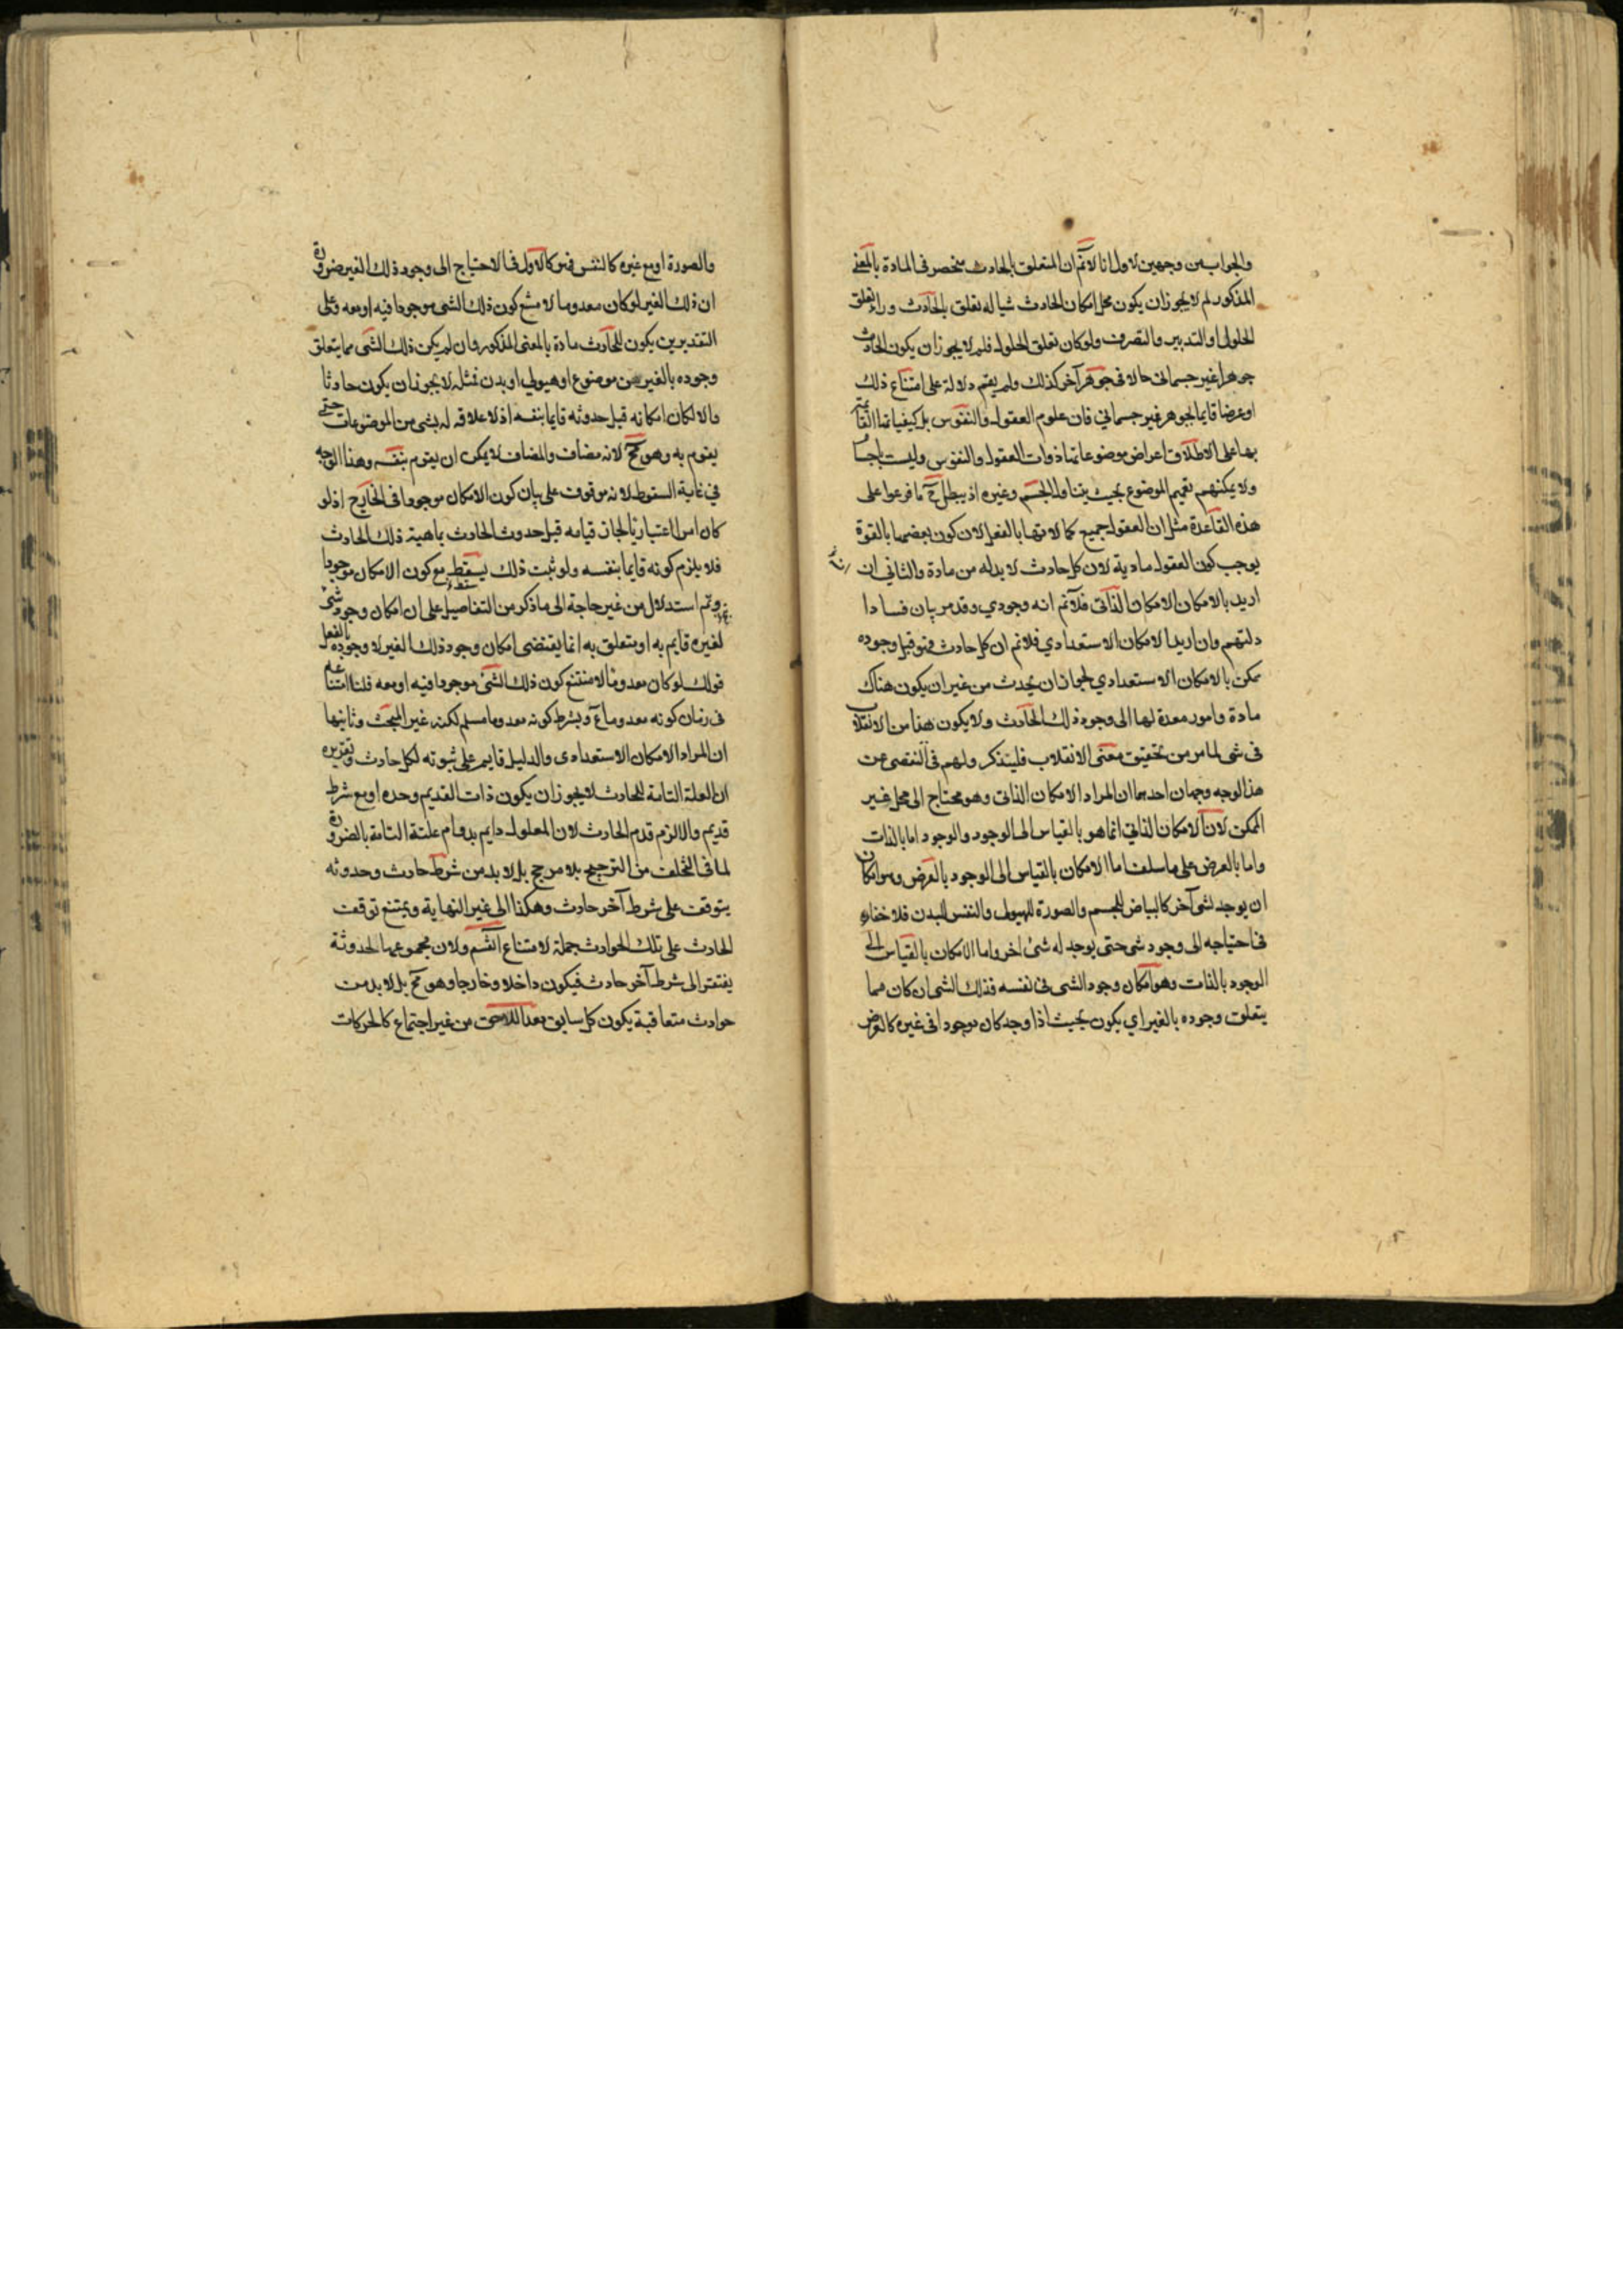 والجواب من وجهين الاول انا لانم ان المتعلق بالحادث منحصر فى المادة بالمعنى
المذكور لم لا يجوز ان يكون محل امكان الحادث شيا له تعلق بالحادث وراء تعلق
الحلول او التدبير والتصرف ولو كان تعلق الحلول فلم لا يجوز ان يكون الحادث
جوهرا غير جسمانى حالا فى جوهر آخر كذلك ولم يقم دلالة على امتناع ذلك
او عرضا قايما بجوهر غير جسماني فان علوم العقول والنفوس بل كيفياتها القائمة
بها على الاطلاق اعراض موضوعاتها ذوات العقول والنفوس وليست باجسام
ولا يمكنهم تعميم الموضوع بحيث يتناول الجسم وغيره اذ يبطل ح ما فرعوا على
هذه القاعدة مثل ان العقول جميع كمالاتها بالفعل لان كون بعضها بالقوة
يوجب كون العقول مادية لان كل حادث لا بد له من مادة والثاني ان
اريد بالامكان الامكان الذاتى فلانم انه وجودي وقد مر بيان فساد ا
دلتهم وان اريد الامكان الاستعدادي فلانم ان كل حادث فهو قبل وجوده
ممكن بالامكان الاستعدادي لجواز ان يحدث من غير ان يكون هناك
مادة وامور معدة لها الى وجود ذلك الحادث ولا يكون هذا من الانقلاب
فى شى لما مر من تحقيق معنى الانقلاب فليتذكر ولهم فى التفصى عن
هذا الوجه وجهان احدهما ان المراد الامكان الذاتى وهو محتاج الى محل غير
الممكن لان الامكان الذاتي انما هو بالقياس الى الوجود والوجود اما بالذات
واما بالعرض على ما سلف اما الامكان بالقياس الى الوجود بالعرض وهو امكان
ان يوجد لشى آخر كالبياض للجسم والصورة للهيولى والنفس للبدن فلا خفاء
فى احتياجه الى وجود شى حتى يوجد له شئ اخر واما الامكان بالقياس الى
الوجود بالذات وهو امكان وجود الشى فى نفسه فذلك الشى ان كان مما
يتعلق وجوده بالغير اي يكون بحيث اذا وجد كان موجودا فى غيره كالعرض
والصورة او مع غيره كالنفس فهو كالاول فى الاحتياج الى وجود ذلك الغير ضرورة
ان ذلك الغير لو كان معدوما لامتنع كون ذلك الشى موجودا فيه او معه وعلى
التقديرين يكون للحادث مادة بالمعنى المذكور وان لم يكن ذلك الشى مما يتعلق
وجوده بالغير من موضوع او هيولي او بدن فمثله لا يجوز ان يكون حادثا
والا لكان امكانه قبل حدوثه قايما بنفسه اذ لا علاقه له بشى من الموضوعات حتى
يقوم به وهو مح لانه مضاف والمضاف لا يمكن ان يقوم بنفسه وهذا الوجه
في غاية السقوط لانه موقوف على بيان كون الامكان موجودا فى الخارج اذ لو
كان امرا اعتباريا لجاز قيامه قبل حدوث الحادث بماهية ذلك الحادث
فلا يلزم كونه قايما بنفسه ولو ثبت ذلك يسقط مع كون الامكان موجودا
وتم استدلال من غير حاجة الى ما ذكر من التفاصيل على ان امكان وجود شى
لغيره قايم به او متعلق به انما يقتضى امكان وجود ذلك الغير لا وجوده بالفعل
قولك لو كان معدوما لامتنع كون ذلك الشى موجودا فيه او معه قلنا امتناعه
فى زمان كونه معدوما م وبشرط كونه معدوما مسلم لكنه غير المبحث وثانيها
ان المراد الامكان الاستعدادى والدليل قايم على ثبوته لكل حادث وتقريره
ان العلة التامة للحادث لا يجوز ان يكون ذات القديم وحده او مع شرط
قديم والا لزم قدم الحادث لان المعلول دايم بدوام علته التامة بالضرورة
لما فى التخلف من الترجيح بلا مرجح بل لا بد من شرط حادث وحدوثه
يتوقف على شرط آخر حادث وهكذا الى غير النهاية ويمتنع توقف
الحادث على تلك الحوادث جملة لامتناع التسلسل ولان مجموعها لحدوثة
يفتقر الى شرط آخر حادث فيكون داخلا وخارجا وهو مح بل لا بد من
حوادث متعاقبة يكون كل سابق معدا للاحق من غير اجتماع كالحركات